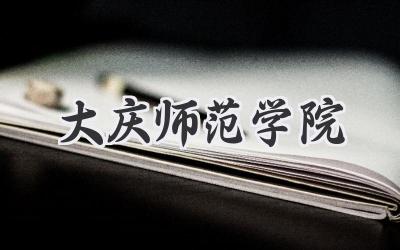 大庆师范学院